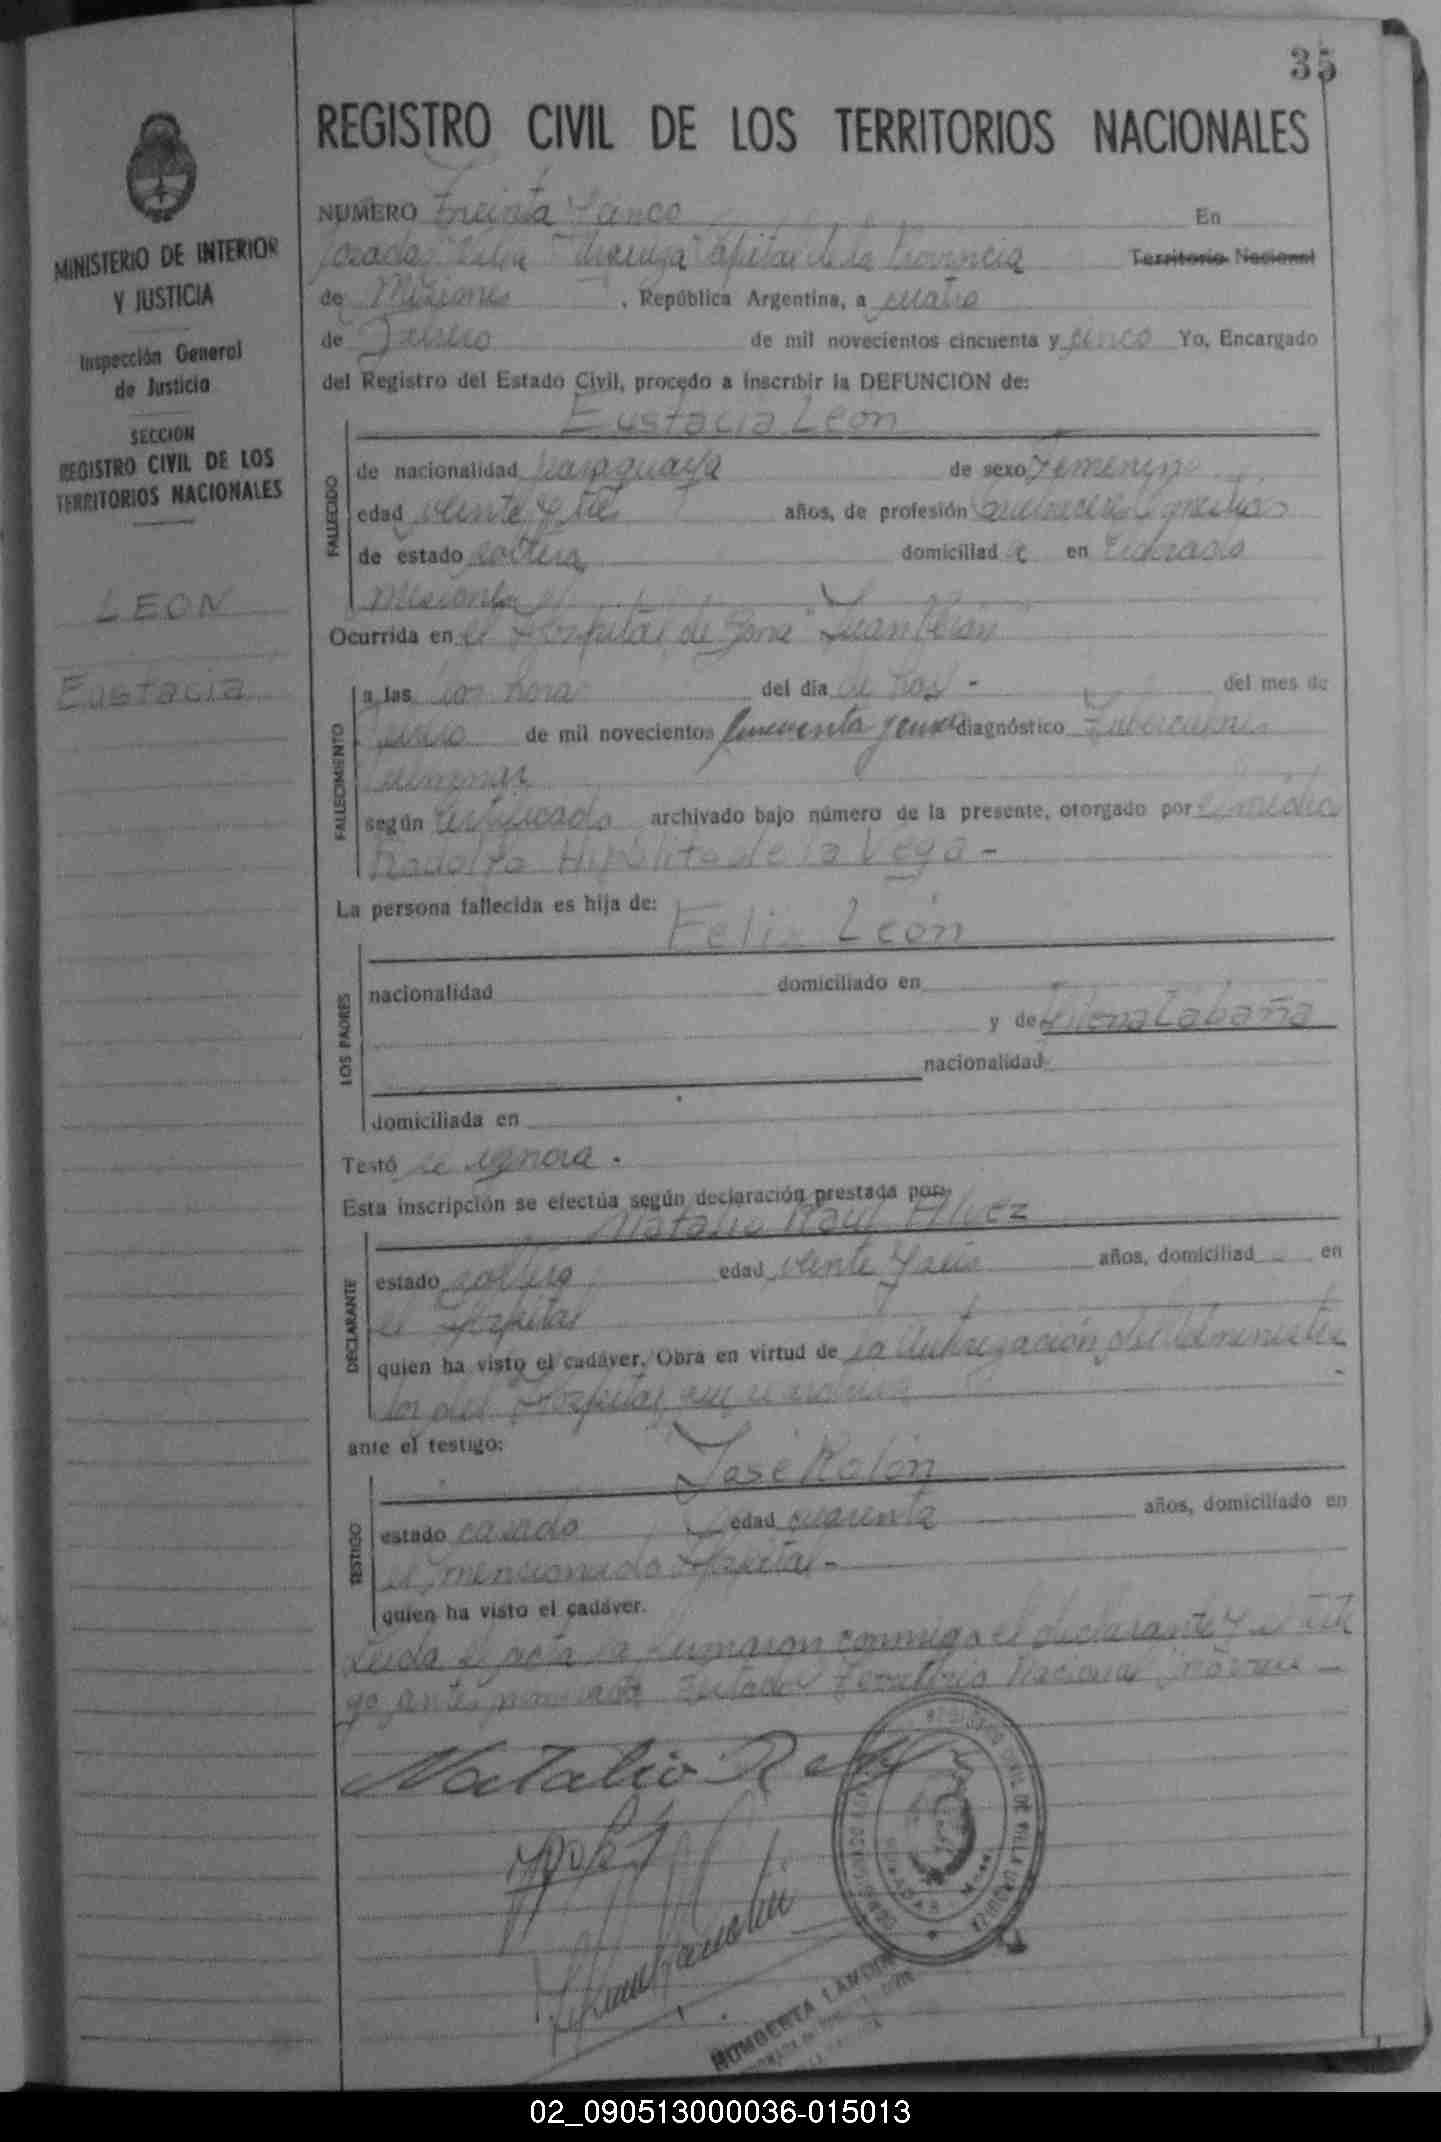 35
REGISTRO CIVIL DE LOS TERRITORIOS NACIONALES
MINISTERIO DE INTERIOR
Y JUSTICIA
Inspección General
de Justicia
SECCION
REGISTRO CIVIL DE LOS
TERRITORIOS NACIONALES
LEON
Eustacia
NUMERO Treinta y cinco En
Posadas Villa Urquiza Capital de la Provincia Territorio Nacional
de Misiones , República Argentina, a cuatro
de de mil novecientos cincuenta y cinco Yo, Encargado
del Registro del Estado Civil, procedo a inscribir la DEFUNCION de:
Eustacia León
FALLECIDO
de nacionalidad paraguaya de sexo femenino
edad veinte y años, de profesión
de estado soltera domiciliad a en
Misiones
Ocurrida en el Hospital de Zona "Juan Perón"
FALLECIMIENTO
a las del día de hoy - del mes de
de mil novecientos cincuenta y cinco diagnóstico Tuberculosis
pulmonar
según certificado archivado bajo número de la presente, otorgado por el médico
Rodolfo Hipólito de la Vega -
La persona fallecida es hija de:
Felix León
LOS PADRES
nacionalidad domiciliado en
y de Cabaña
nacionalidad
domiciliada en
Testó se ignora .
Esta inscripción se efectúa según declaración prestada por:
Natalio Raul Alvez
DECLARANTE
estado soltero edad veinte y seis años, domiciliad en
el Hospital
quien ha visto el cadáver. Obra en virtud de la autorización del administra
dor del Hospital que se archiva -
ante el testigo:
José Rolón
TESTIGO
estado casado edad cuarenta años, domiciliado en
el mencionado Hospital -
quien ha visto el cadáver.
Leida el acta la firmaron conmigo el declarante y el testi
go antes nombrado. Testado: Territorio Nacional
Natalio R
REGISTRO CIVIL DE VILLA URQUIZA
POSADAS
HUMBERTA
02_090513000036-015013